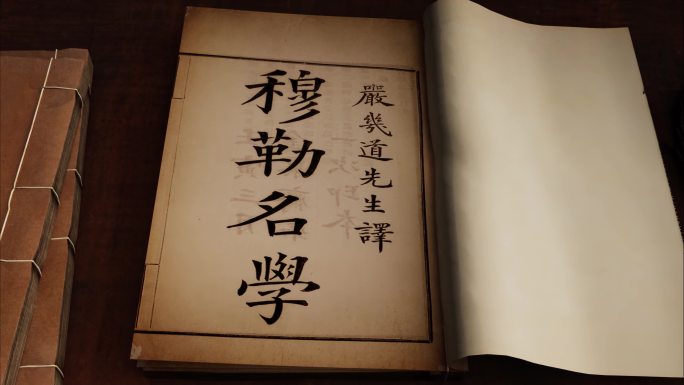 嚴幾道先生譯
穆勒名學